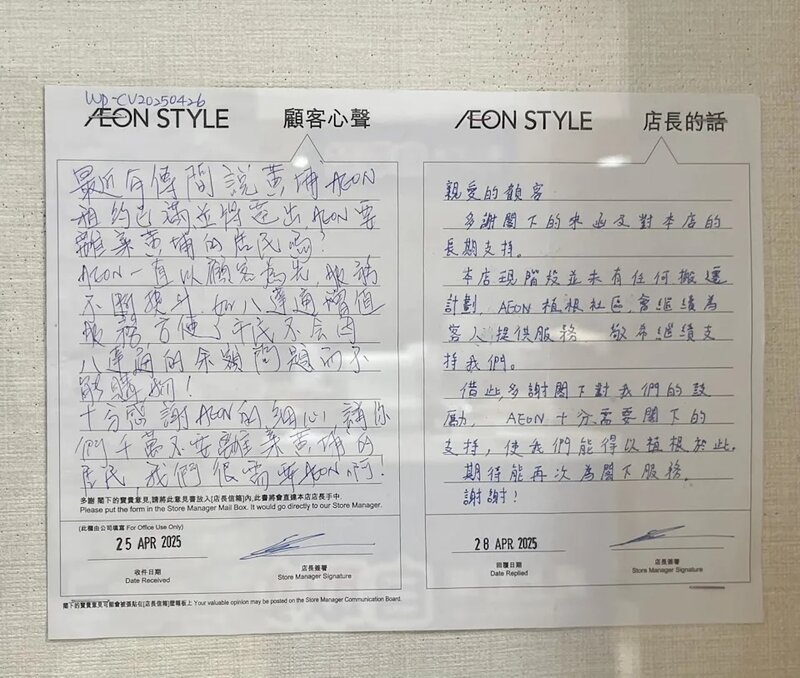 WP-CV20250426
ÆON STYLE 顧客心聲
最近有傳聞說黃埔AEON
租約已滿並將遷出AEON要
離棄黃埔的居民嗎?
AEON一直以顧客為先,服務
不斷提升 如八達通增值
服務方便了千民不会因
八達通的余額問題而不
能購物!
十分感謝AEON的細心 請你
們千萬不要離棄黃埔的
居民,我們很需要AEON啊!
多謝 閣下的寶貴意見,請將此意見書放入[店長信箱]內,此書將會直達本店店長手中.
Please put the form in the Store Manager Mail Box. It would go directly to our Store Manager.
(此欄由公司填寫 For Office Use Only)
25 APR 2025
收件日期
Date Received
店長簽署
Store Manager Signature
閣下的寶貴意見可能會被張貼在[店長信箱]壁報板上 Your valuable opinion may be posted on the Store Manager Communication Board.
ÆON STYLE 店長的話
親愛的顧客
多謝閣下的來函及對本店的
長期支持。
本店現階段並未有任何搬遷
計劃, AEON 植根社區,會繼續為
客人提供服務, 敬希繼續支
持我們。
借此多謝閣下對我們的鼓
勵, AEON 十分需要閣下的
支持,使我們能得以植根於此,
期待能再次為閣下服務.
謝謝!
28 APR 2025
回覆日期
Date Replied
店長簽署
Store Manager Signature